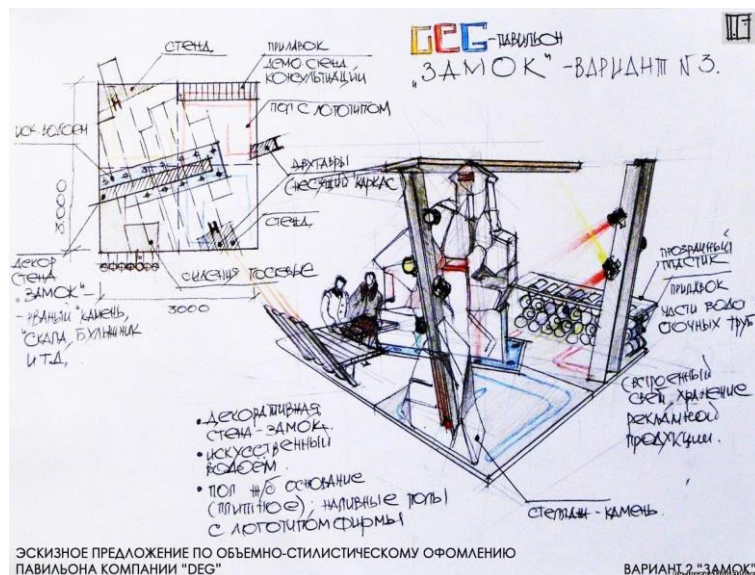 DEG -ПАВИЛЬОН
"ЗАМОК" -ВАРИАНТ №3.
СТЕНД
ПРИЛАВОК
ДЕМО СТЕНА
КОНСУЛЬТАЦИИ
ПОЛ С ЛОГОТИПОМ
ИСК. ВОДОЕМ
ДВУТАВРЫ
(НЕСУЩИЙ КАРКАС)
СТЕНД
СИДЕНИЯ ГОСТЕВЫЕ
3000
ДЕКОР
СТЕНА
"ЗАМОК"-
- РВАНЫЙ КАМЕНЬ,
СКАЛА, БУЛЫЖНИК
И Т.Д.
ПРОЗРАЧНЫЙ
ПЛАСТИК
ПРИЛАВОК
ЧАСТИ ВОДО
СТОЧНЫХ ТРУБ
(ВСТРОЕННЫЙ
СВЕТ, ХРАНЕНИЕ
РЕКЛАМНОЙ
ПРОДУКЦИИ.
• ДЕКОРАТИВНАЯ
СТЕНА-ЗАМОК.
• ИСКУССТВЕННЫЙ
ВОДОЕМ.
• ПОЛ Ж/Б ОСНОВАНИЕ
(ПЛИТНОЕ); НАЛИВНЫЕ ПОЛЫ
С ЛОГОТИПОМ ФИРМЫ
СТЕЛЛАЖ - КАМЕНЬ.
ЭСКИЗНОЕ ПРЕДЛОЖЕНИЕ ПО ОБЪЕМНО-СТИЛИСТИЧЕСКОМУ ОФОМЛЕНИЮ
ПАВИЛЬОНА КОМПАНИИ "DEG"
ВАРИАНТ 2 "ЗАМОК"